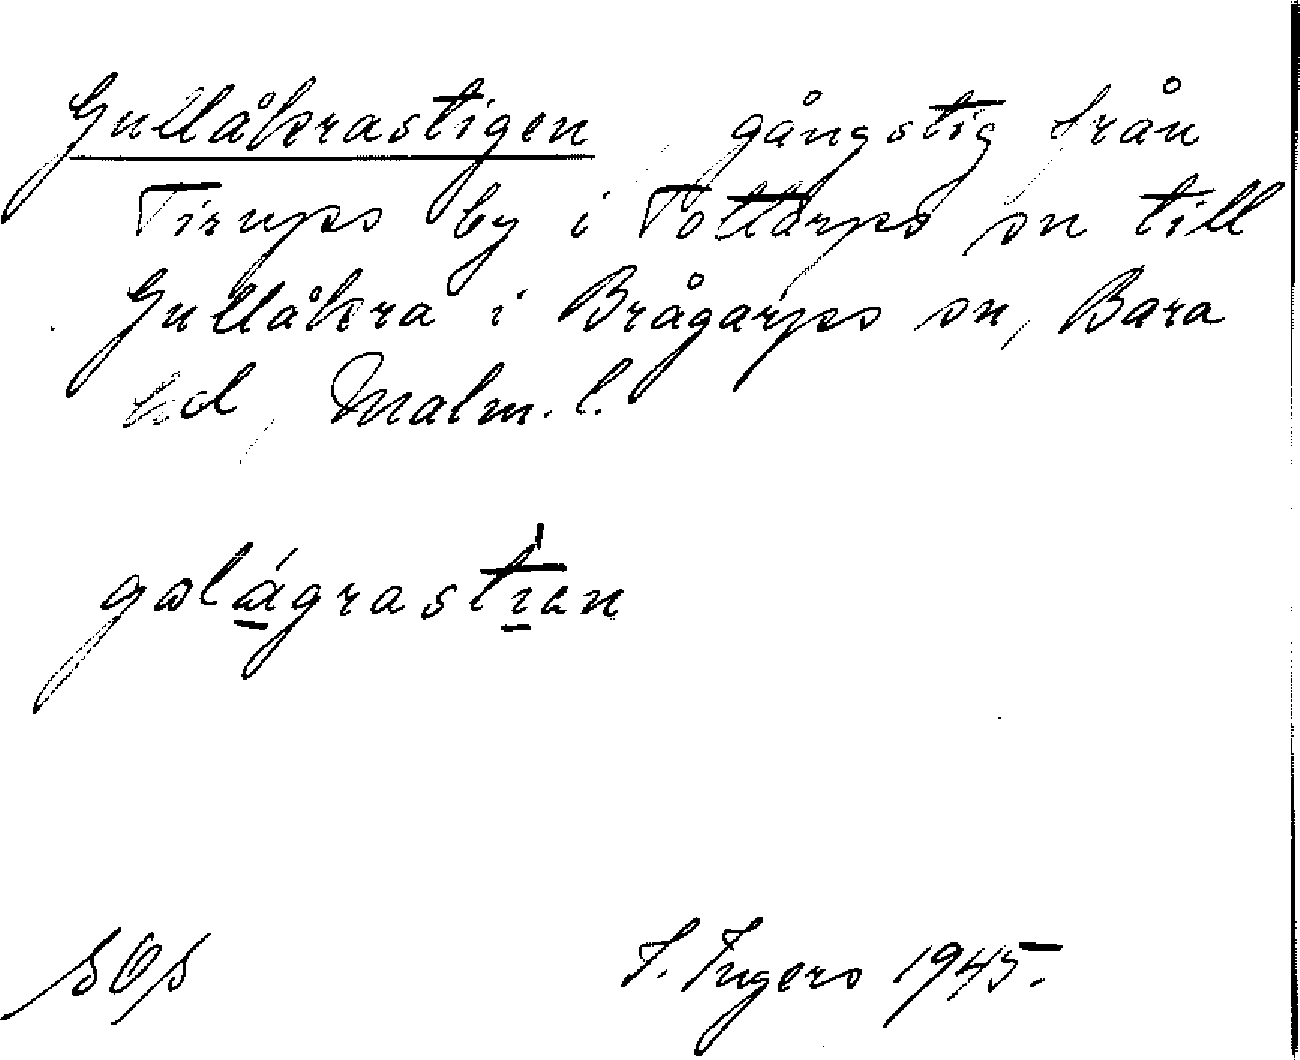 Gullåkrastigen gångstig från
Tirups by i Tottarps sn till
Gullåkra i Brågarps sn, Bara
hd, Malm. l.
galågrastien
I. Ingers 1945.